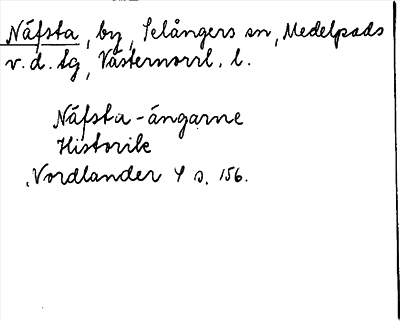 Näfsta, by, Selångers sn, Medelpads
v. d. tg, Västernorrl. l.
Näfsta-ängarne
Historik
Nordlander 4 s. 156.